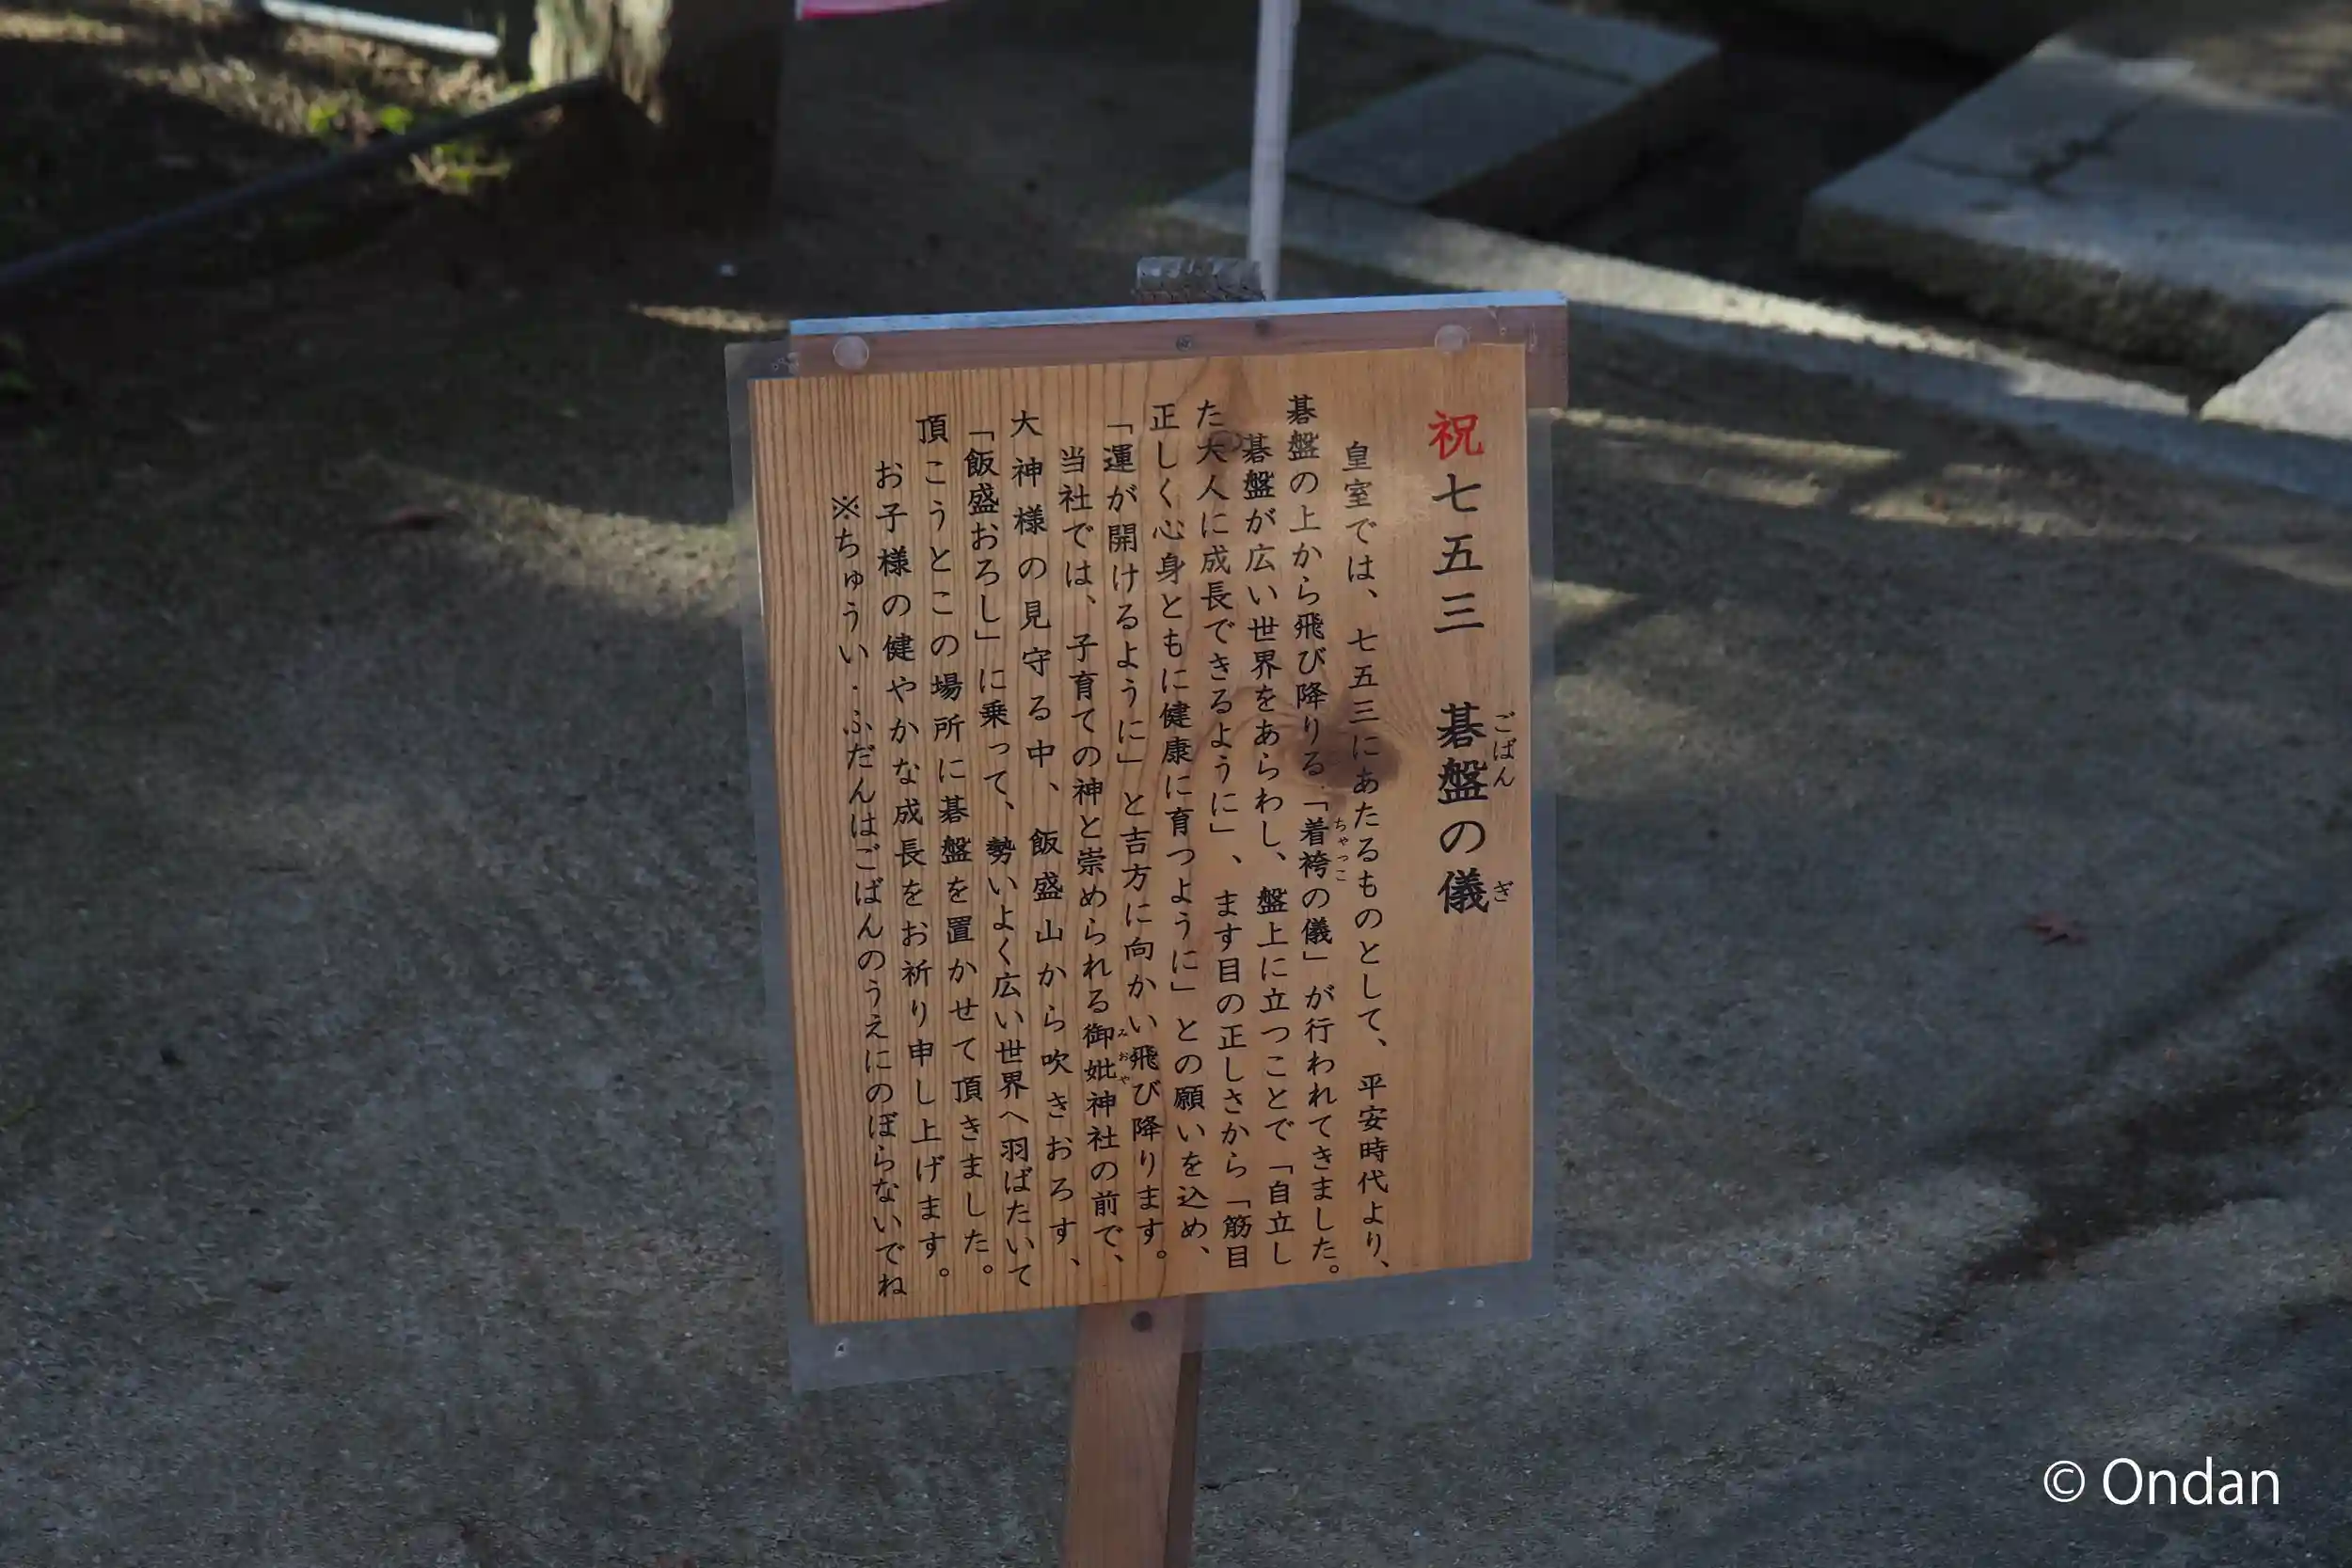 祝七五三 碁盤の儀
ごばん
ぎ
皇室では、七五三にあたるものとして、平安時代より、
碁盤の上から飛び降りる「着袴の儀」が行われてきました。
ちゃっこ
碁盤が広い世界をあらわし、盤上に立つことで「自立し
た大人に成長できるように」、ます目の正しさから「筋目
正しく心身ともに健康に育つように」との願いを込め、
「運が開けるように」と吉方に向かい飛び降ります。
当社では、子育ての神と崇められる御妣神社の前で、
みおや
大神様の見守る中、飯盛山から吹きおろす、
「飯盛おろし」に乗って、勢いよく広い世界へ羽ばたいて
頂こうとこの場所に碁盤を置かせて頂きました。
お子様の健やかな成長をお祈り申し上げます。
※ちゅうい:ふだんはごばんのうえにのぼらないでね
© Ondan